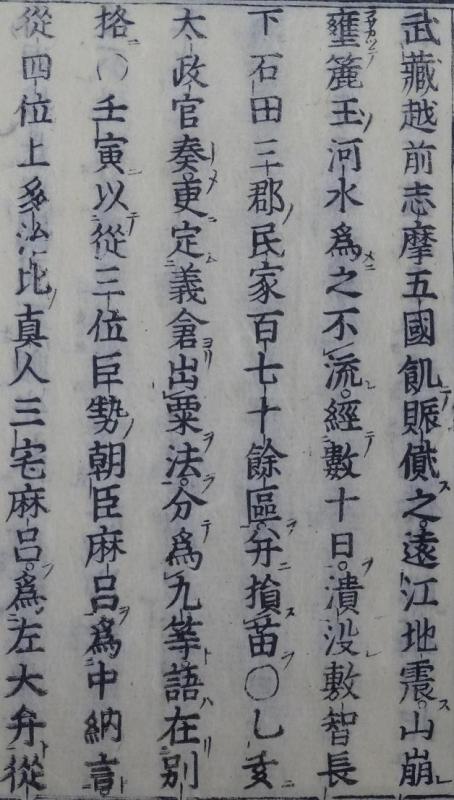 武藏越前志摩五國飢賑貸之。遠江地震。山崩
壅簏玉河水為之不流。經數十日。潰没敷智長
下石田三郡民家百七十餘區。并損苗〇乙亥
太政官奏更定義倉出粟法。分為九等語在別
挌〇壬寅以從三位巨勢朝臣麻呂為中納言
從四位上多治比真人三宅麻呂。為左大弁從